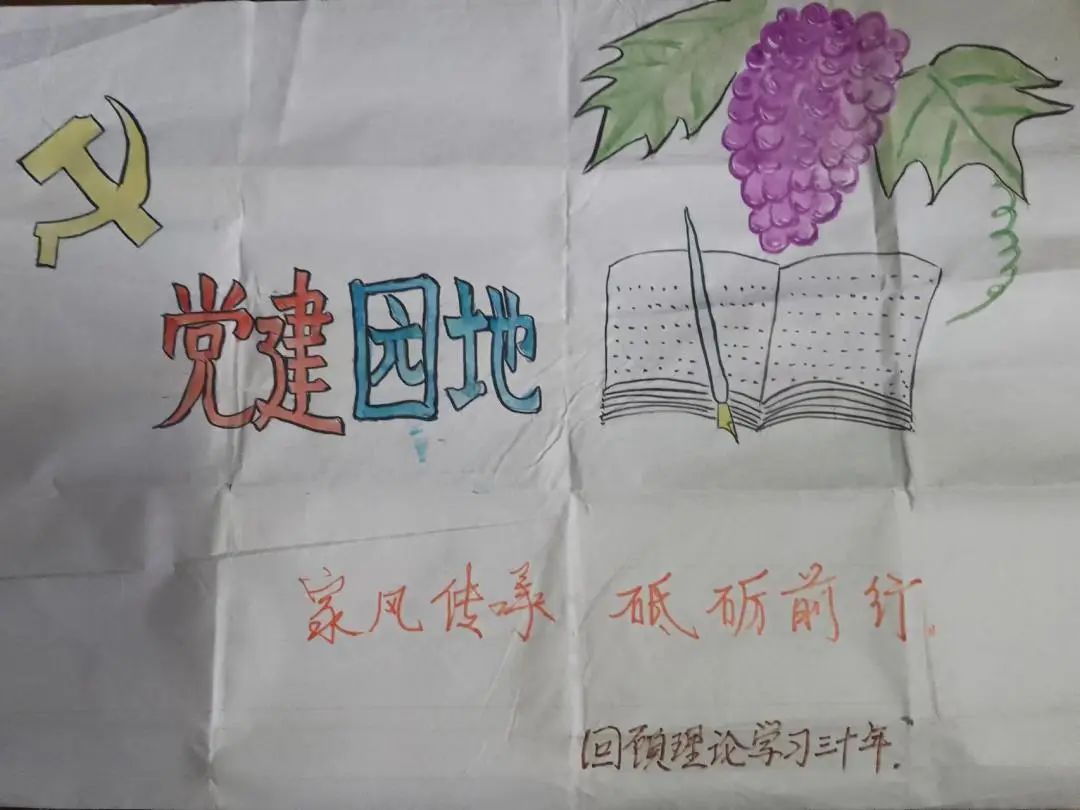 党建园地
家风传承 砥砺前行.
回顾理论学习三十年.